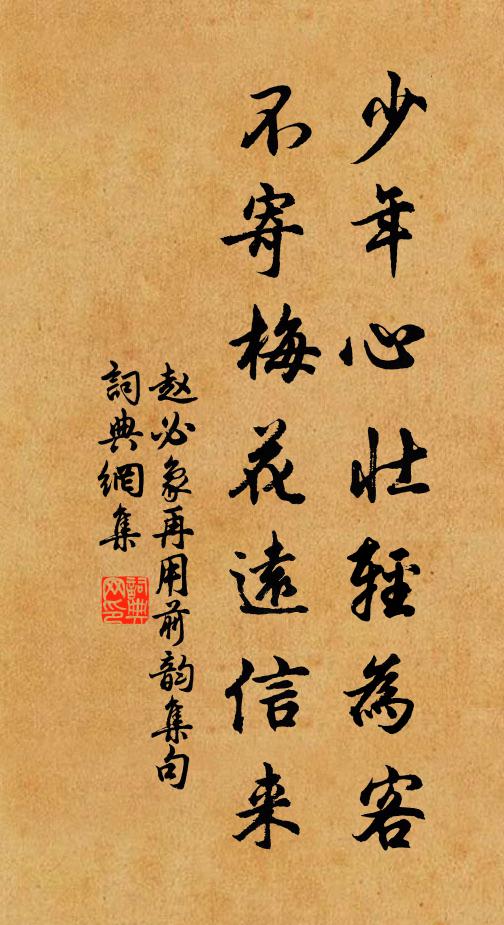 少年心壯輕為客
不寄梅花遠信来
赵必象再用前韵集句
詞典網集
詞典网印